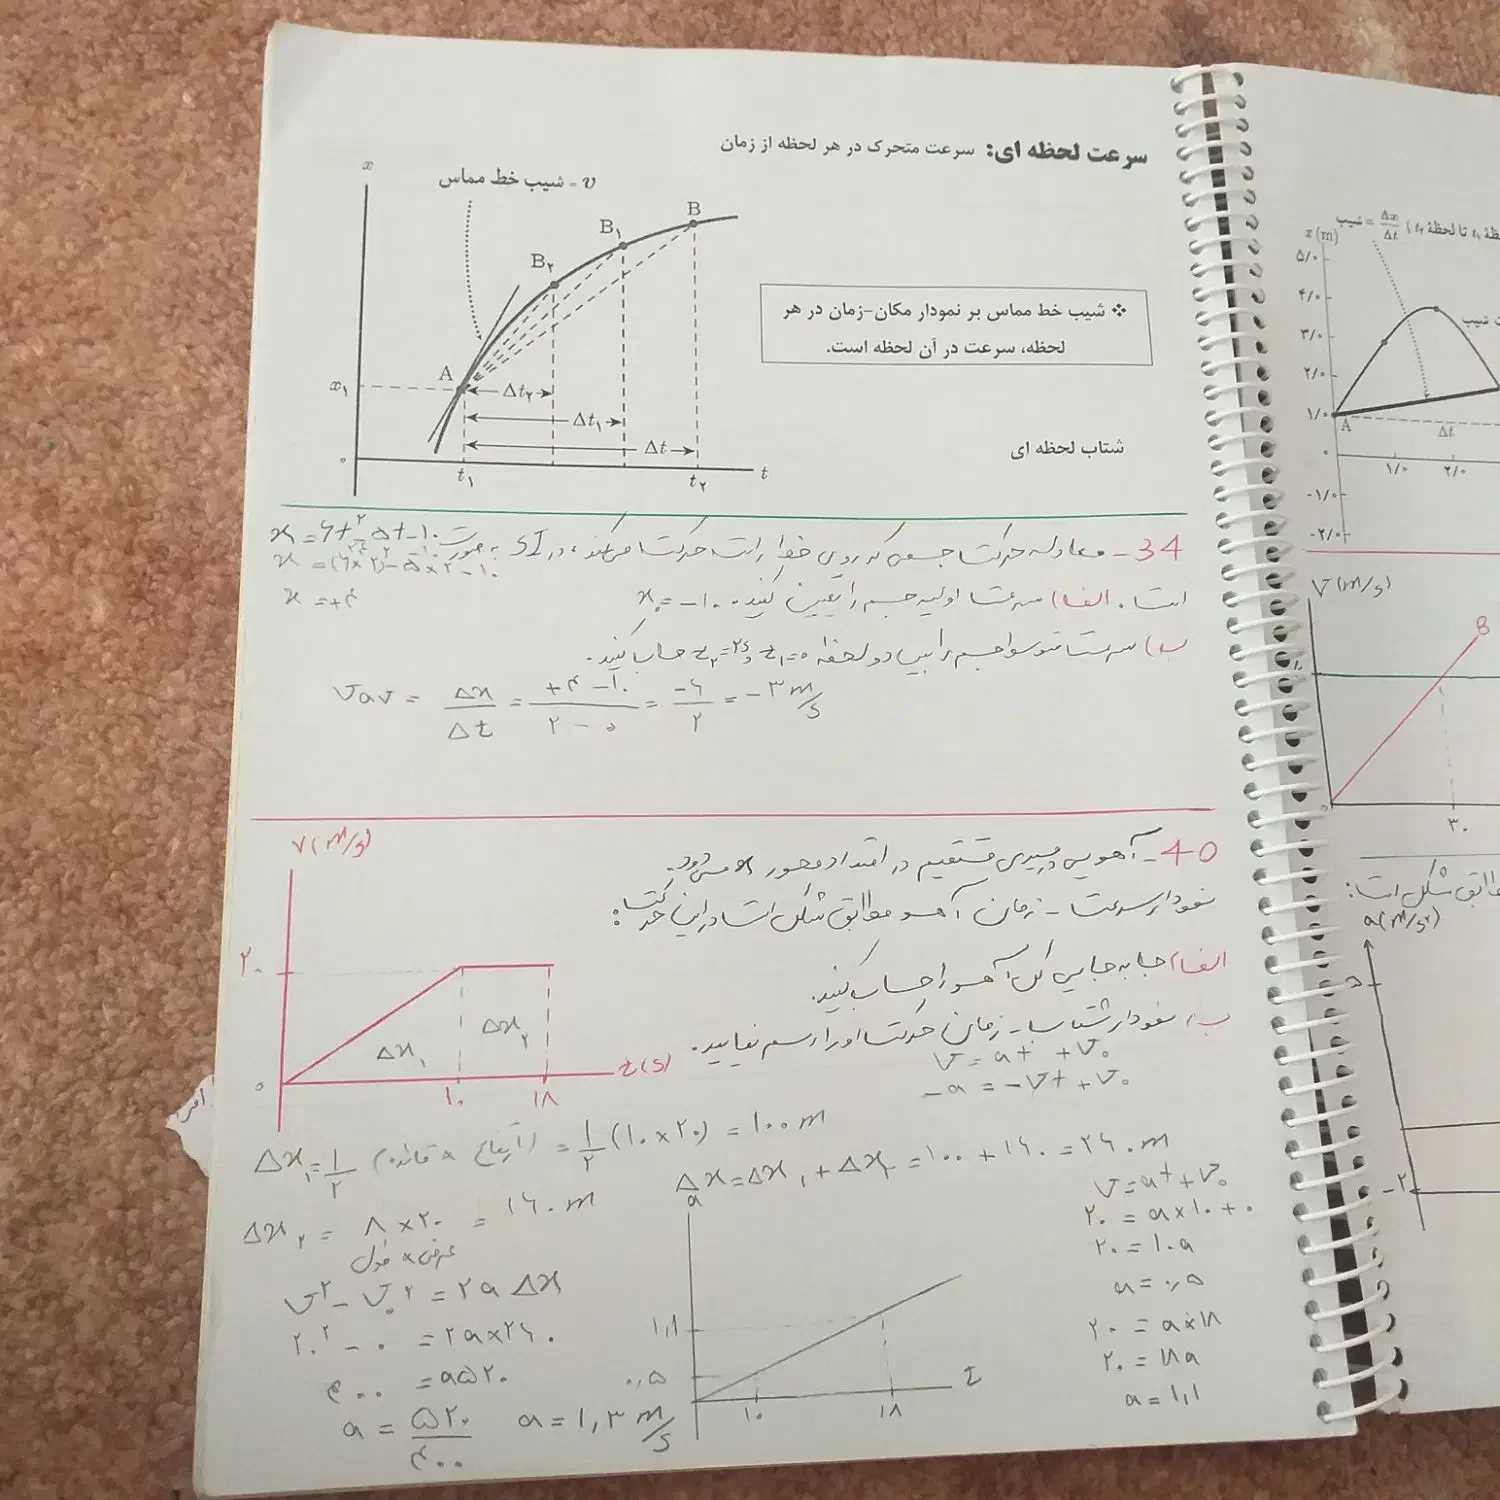 سرعت لحظه ای: سرعت متحرک در هر لحظه از زمان
x
v = شیب خط مماس
B
B۱
B۲
A
x۱
Δt۲
Δt۱
Δt
۰
t۱
t۲
t
❖ شیب خط مماس بر نمودار مکان-زمان در هر
لحظه، سرعت در آن لحظه است.
شتاب لحظه ای
34- معادله حرکت جسمی که روی خط راست حرکت می‌کند، در SI به صورت
است. الف) سرعت اولیه جسم را تعیین کنید. x۰ = -۱۰
x = +۴
ب) سرعت متوسط جسم را بین دو لحظه t۱=۰ و t۲=۲s حساب کنید.
Vav = Δx/Δt = +۴-۱۰/۲-۰ = -۶/۲ = -۳ m/s
40- آهویی در مسیری مستقیم در امتداد محور x می‌دود.
نمودار سرعت - زمان آهو مطابق شکل است در این حرکت:
الف) جابه‌جایی کل آهو را حساب کنید.
ب) نمودار شتاب - زمان حرکت او را رسم نمایید.
V = at + V۰
-a = -Vt + V۰
V(m/s)
۲۰
Δx۱
Δx۲
۰
۱۰
۱۸
t(s)
Δx۱ = ۱/۲ (ارتفاع × قاعده) = ۱/۲ (۱۰×۲۰) = ۱۰۰ m
Δx۲ = ۸×۲۰ = ۱۶۰ m
عرض × طول
Δx = Δx۱ + Δx۲ = ۱۰۰ + ۱۶۰ = ۲۶۰ m
V² - V۰² = ۲a Δx
۲۰² - ۰ = ۲a×۲۶۰
۴۰۰ = a۵۲۰
a = ۵۲۰/۴۰۰ a = ۱,۳ m/s
a
۱,۱
۰,۵
۱۰
۱۸
t
V = at + V۰
۲۰ = a×۱۰ + ۰
۲۰ = ۱۰a
a = ۰,۵
۲۰ = a×۱۸
۲۰ = ۱۸a
a = ۱,۱
شیب = Δx/Δt
x(m)
۵/۰
۴/۰
۳/۰
۲/۰
۱/۰
A
Δt
۰
۱/۰
۲/۰
-۱/۰
-۲/۰
شیب
V(m/s)
B
۰
۳۰
مطابق شکل است:
a(m/s²)
۵
-۲